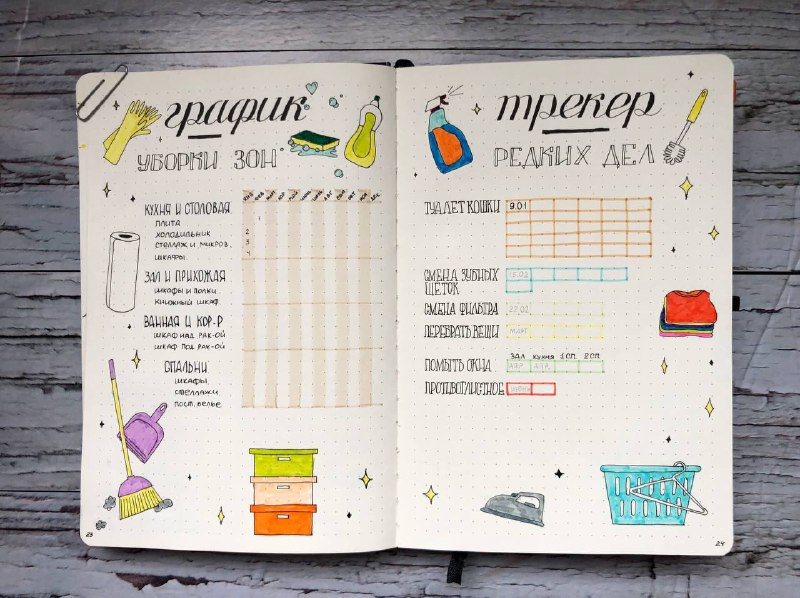 график
УБОРКИ ЗОН
КУХНЯ И СТОЛОВАЯ
ПЛИТА
ХОЛОДИЛЬНИК
СТЕЛЛАЖ И МИКРОВ.
ШКАФЫ.
1
2
3
4
ЗАЛ И ПРИХОЖАЯ
ШКАФЫ И ПОЛКИ.
КНИЖНЫЙ ШКАФ.
ВАННАЯ И КОР-Р
ШКАФ НАД РАК-ОЙ
ШКАФ ПОД РАК-ОЙ
СПАЛЬНИ
ШКАФЫ,
СТЕЛЛАЖИ
ПОСТ. БЕЛЬЕ
23
трекер
РЕДКИХ ДЕЛ
ТУАЛЕТ КОШКИ 9.01
СМЕНА ЗУБНЫХ 15.02
ЩЕТОК
СМЕНА ФИЛЬТРА 22.02
ПЕРЕБРАТЬ ВЕЩИ МАЯТ
ЗАЛ КУХНЯ 1СП. 2СП.
ПОМЫТЬ ОКНА АПР. АПР.
ПРОТИВОГЛИСТНОЕ ИЮНЬ
24